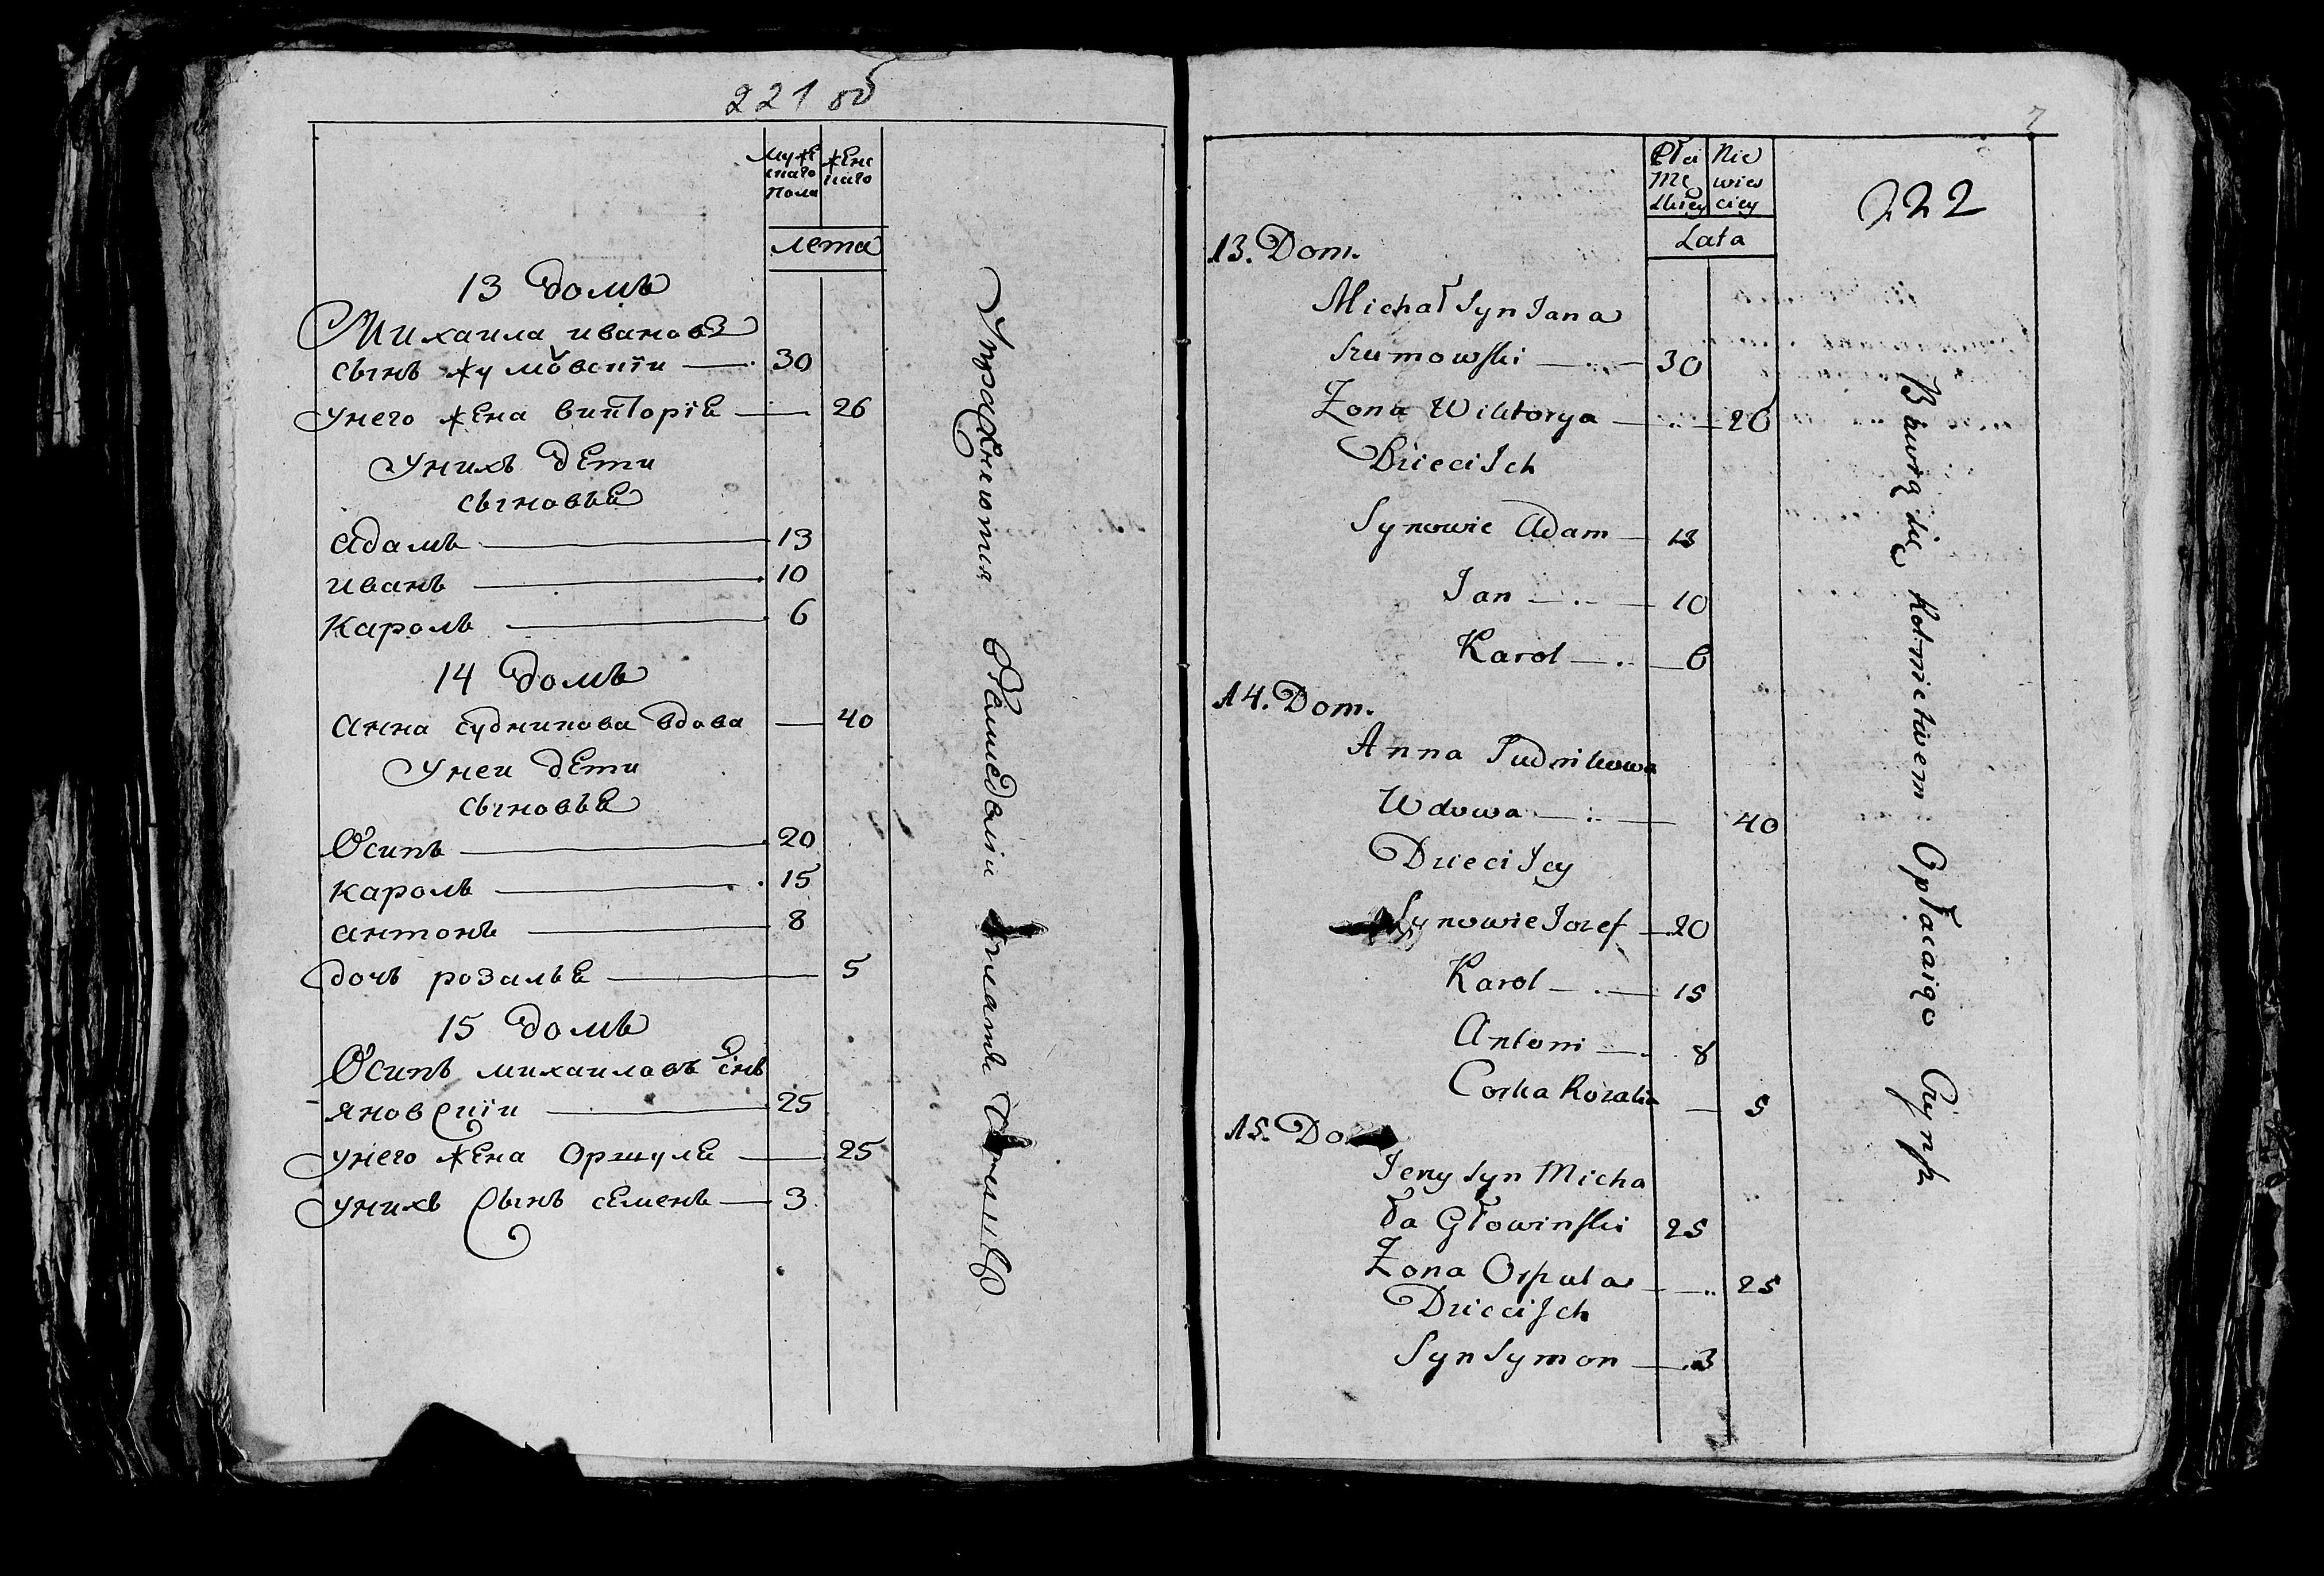 221 об
Муже
скаго
пола
жен
скаго
лета
13 домъ
Михаила ивановъ
сынъ жумовскіи — 30
унего жена викторіе — 26
Унихъ дети
сыновье
адамъ — 13
иванъ — 10
Кароль — 6
14 домъ
анна судникова вдова — 40
Унеи дети
сыновье
Осипъ — 20
кароль — 15
антонъ — 8
дочь розалье — 5
15 домъ
Осипъ михаиловъ снъ
яновскіи — 25
унего жена оршуле — 25
унихъ сынъ семенъ — 3
Упражняются
7
222
Płci
Mę
skiey
Nie
wies
ciey
Lata
13. Dom.
Michał Syn Jana
Szumowski — 30
Zona Wiktorya — 26
Dzieci Ich
Synowie Adam — 13
Jan — 10
Karol — 6
14. Dom.
Anna Sudnikowa
Wdowa — 40
Dzieci Jey
Synowie Jozef — 20
Karol — 15
Antoni — 8
Corka Rozalia — 5
15. Do
Jerzy syn Micha
ła Głowinski 25
Zona Orszula — 25
Dzieci Ich
Syn Symon — 3
Bawią się Rolnictwem Opłacaią Czynsz